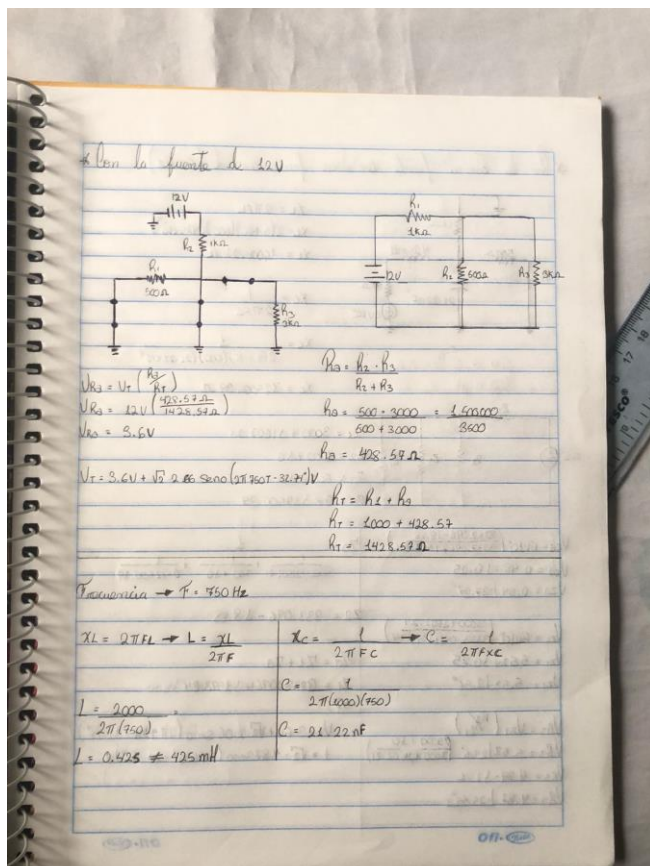 * Con la fuente de 12V
12V
R2 1KΩ
R1
500Ω
R3
3KΩ
R1
1KΩ
12V
R2 500Ω
R3 3KΩ
VRa = VT (Ra/RT)
VRa = 12V (428.57Ω/1428.57Ω)
VRa = 3.6V
VT = 3.6V + √2 2.86 Seno (2π750T - 32.71°)V
Ra = R2 · R3 / R2 + R3
Ra = 500 · 3000 / 500 + 3000 = 1500000 / 3500
Ra = 428.57Ω
RT = R1 + Ra
RT = 1000 + 428.57
RT = 1428.57Ω
Frecuencia → F = 750 Hz
XL = 2πFL → L = XL / 2πF
L = 2000 / 2π(750)
L = 0.425 ≠ 425mH
XC = 1 / 2πFC → C = 1 / 2πFXC
C = 1 / 2π(1000)(750)
C = 21.22nF